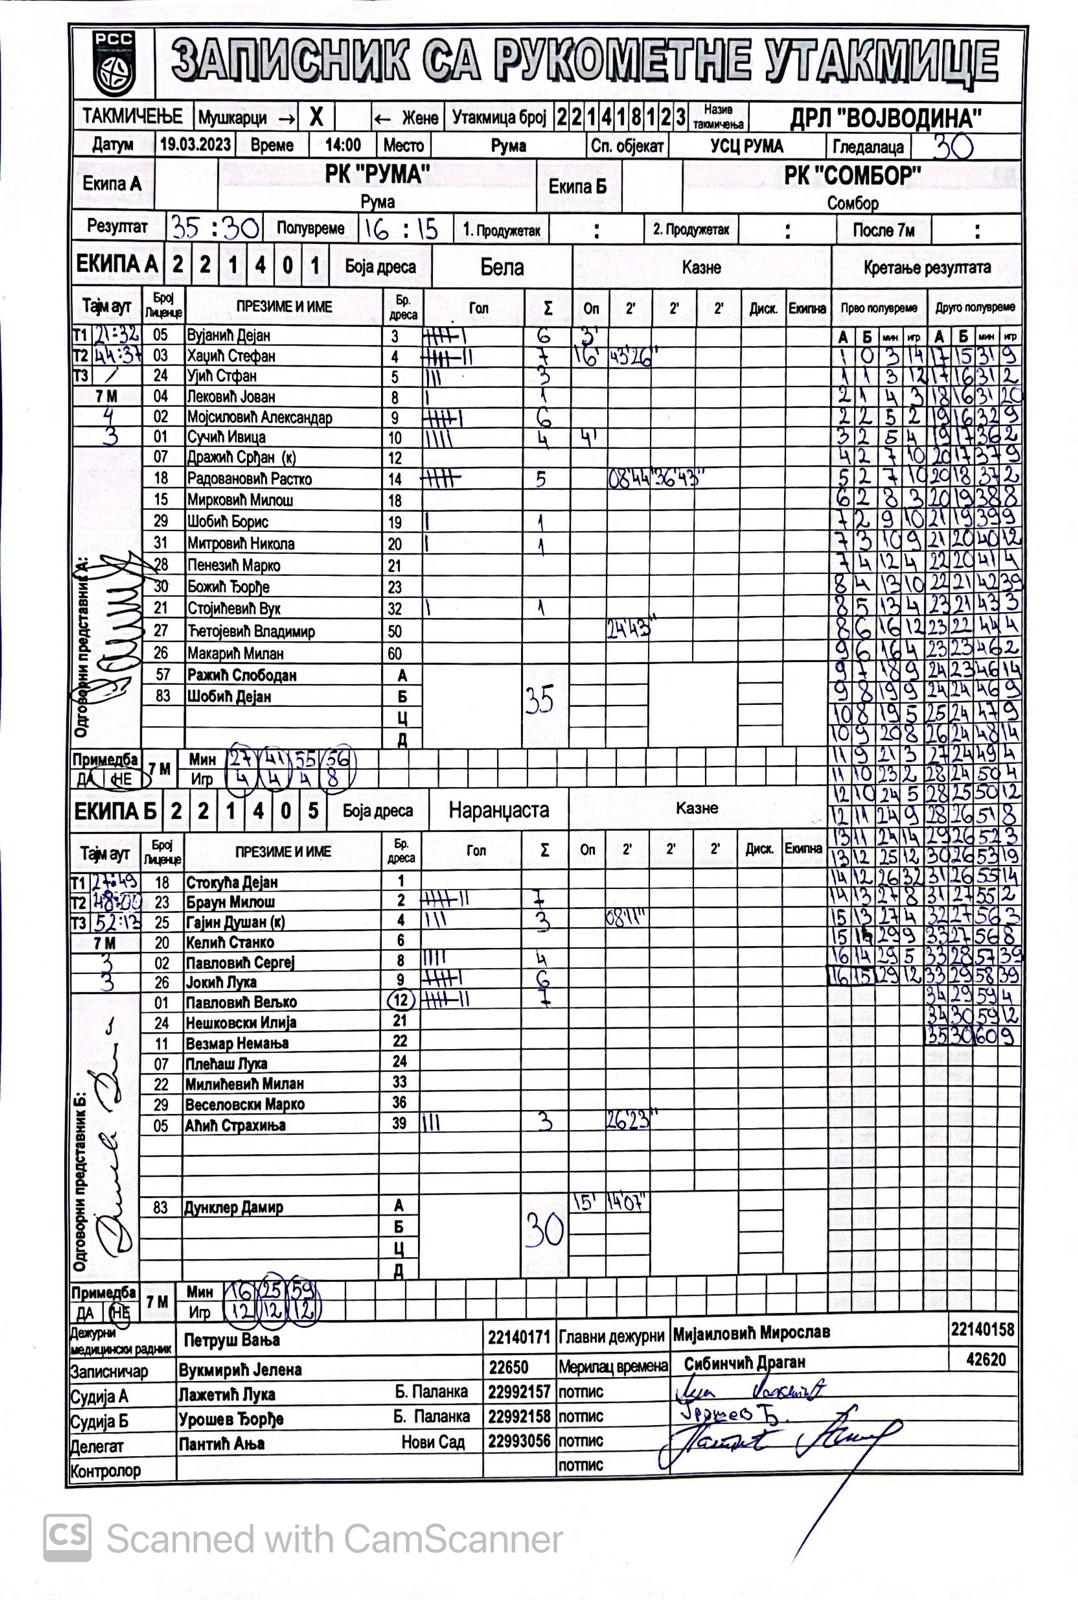 РСС
ЗАПИСНИК СА РУКОМЕТНЕ УТАКМИЦЕ
ТАКМИЧЕЊЕ Мушкарци → X ← Жене Утакмица број 2 2 1 4 1 8 1 2 3 Назив такмичења ДРЛ "ВОЈВОДИНА"
Датум 19.03.2023 Време 14:00 Место Рума Сп. објекат УСЦ РУМА Гледалаца 30
Екипа А РК "РУМА" Рума Екипа Б РК "СОМБОР" Сомбор
Резултат 35 : 30 Полувреме 16 : 15 1. Продужетак : 2. Продужетак : После 7м :
ЕКИПА А 2 2 1 4 0 1 Боја дреса Бела Казне Кретање резултата
Тајм аут Број Лиценце ПРЕЗИМЕ И ИМЕ Бр. дреса Гол Σ Оп 2' 2' 2' Диск. Екипна Прво полувреме Друго полувреме
А Б мин игр А Б мин игр
Т1 21:32 05 Вујанић Дејан 3 6 3'
Т2 44:37 03 Хаџић Стефан 4 7 16' 43'26"
Т3 / 24 Ујић Стфан 5 3
7 М 04 Лековић Јован 8 1
4 02 Мојсиловић Александар 9 6
3 01 Сучић Ивица 10 4 4'
07 Дражић Срђан (к) 12
18 Радовановић Растко 14 5 08'44" 36'43"
15 Мирковић Милош 18
29 Шобић Борис 19 1
31 Митровић Никола 20 1
28 Пенезић Марко 21
30 Божић Ђорђе 23
21 Стојићевић Вук 32 1
27 Ћетојевић Владимир 50 24'43"
26 Макарић Милан 60
57 Ражић Слободан А
83 Шобић Дејан Б
Ц
Д
35
Одговорни представник А:
1 0 3 14 17 15 31 9
1 1 3 12 17 16 31 2
2 1 4 3 18 16 31 20
2 2 5 2 19 16 32 9
3 2 5 4 19 17 36 2
4 2 7 10 20 17 37 9
5 2 7 10 20 18 37 2
6 2 8 3 20 19 38 8
7 2 9 10 21 19 39 9
7 3 10 9 21 20 40 12
7 4 12 4 22 20 41 4
8 4 13 10 22 21 42 39
8 5 13 4 23 21 43 3
8 6 16 12 23 22 44 4
9 6 16 4 23 23 46 2
9 7 18 9 24 23 46 14
9 8 19 9 24 24 46 9
10 8 19 5 25 24 47 9
10 9 20 8 26 24 48 14
11 9 21 3 27 24 49 4
11 10 23 2 28 24 50 4
12 10 24 5 28 25 50 12
12 11 24 9 28 26 51 8
13 11 24 14 29 26 52 3
13 12 25 12 30 26 53 19
14 12 26 32 31 26 55 14
14 13 27 8 31 27 55 2
15 13 27 4 32 27 56 3
15 14 29 9 33 27 56 8
16 14 29 5 33 28 57 39
16 15 29 12 33 29 58 39
34 29 59 4
34 30 59 12
35 30 60 9
Примедба ДА НЕ 7 М Мин 27 41 55 56
Игр 4 4 4 8
ЕКИПА Б 2 2 1 4 0 5 Боја дреса Наранџаста Казне
Тајм аут Број Лиценце ПРЕЗИМЕ И ИМЕ Бр. дреса Гол Σ Оп 2' 2' 2' Диск. Екипна
Т1 27:49 18 Стокућа Дејан 1
Т2 48:00 23 Браун Милош 2 7
Т3 52:13 25 Гајин Душан (к) 4 3 08'11"
7 М 20 Келић Станко 6
3 02 Павловић Сергеј 8 4
3 26 Јокић Лука 9 6
01 Павловић Вељко 12 7
24 Нешковски Илија 21
11 Везмар Немања 22
07 Плећаш Лука 24
22 Милићевић Милан 33
29 Веселовски Марко 36
05 Аћић Страхиња 39 3 26'23"
83 Дунклер Дамир А 15' 14'07"
Б
Ц
Д
30
Одговорни представник Б:
Примедба ДА НЕ 7 М Мин 16 25 59
Игр 12 12 12
Дежурни медицински радник Петруш Вања 22140171 Главни дежурни Мијаиловић Мирослав 22140158
Записничар Вукмирић Јелена 22650 Мерилац времена Сибинчић Драган 42620
Судија А Лажетић Лука Б. Паланка 22992157 потпис
Судија Б Урошев Ђорђе Б. Паланка 22992158 потпис Урошев Ђ.
Делегат Пантић Ања Нови Сад 22993056 потпис
Контролор потпис
CS Scanned with CamScanner